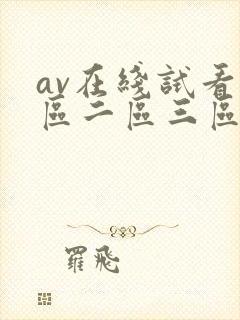 av在綫試看
區二區三區
羅飛